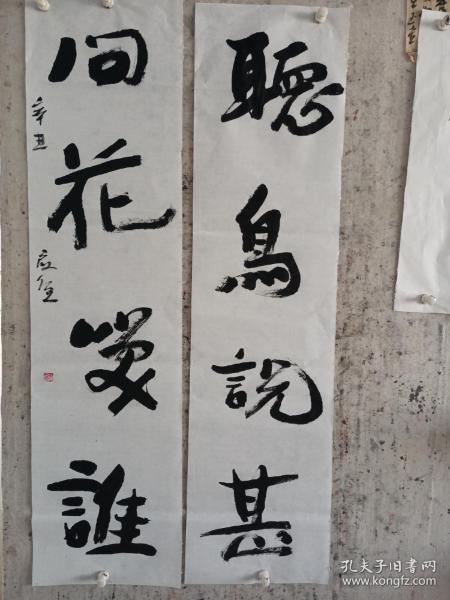 聽鳥說甚
問花笑誰
辛丑
孔夫子旧书网
www.kongfz.com